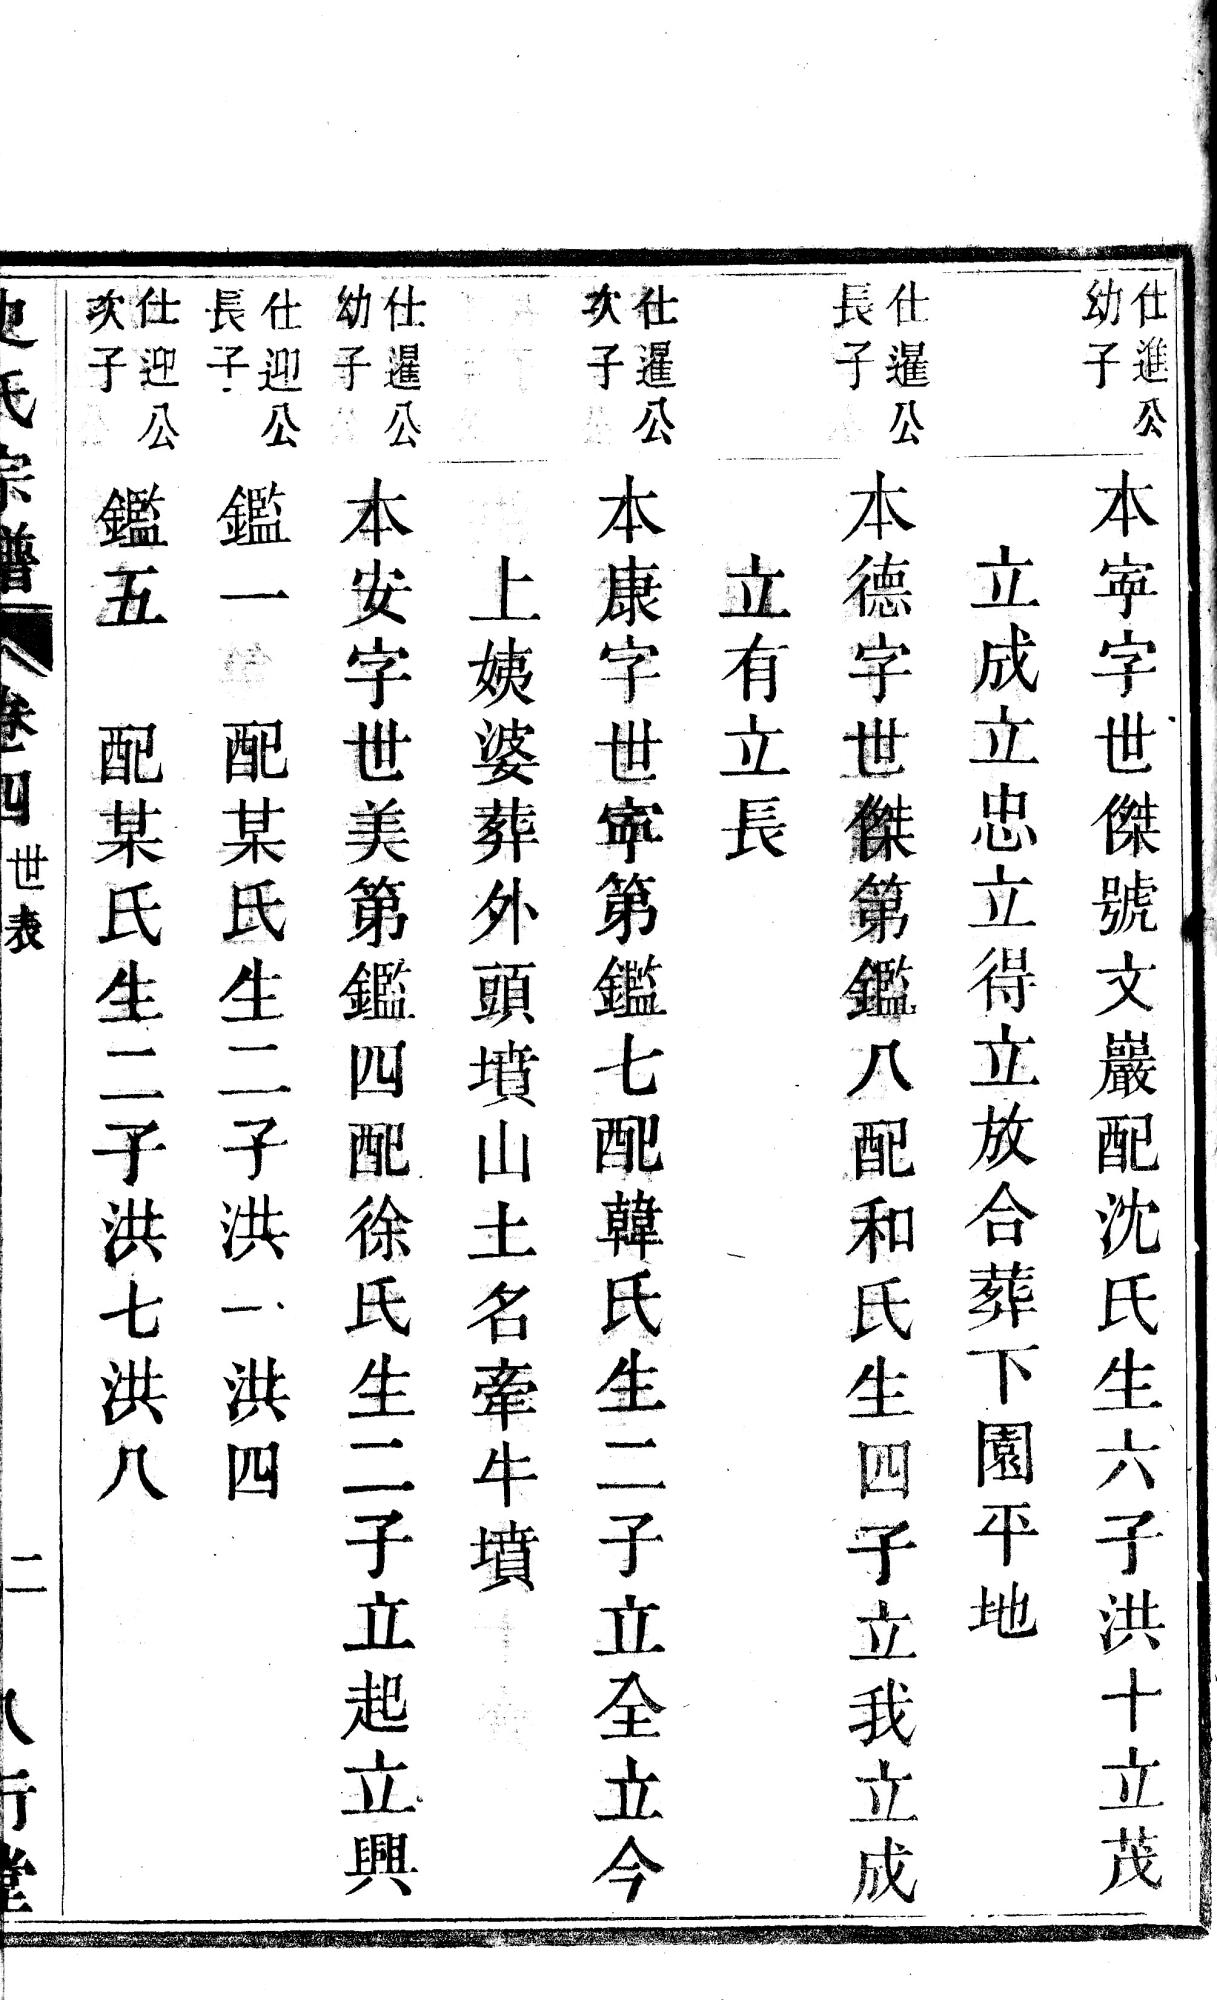 仕進公
幼子
本寕字世傑號文巖配沈氏生六子洪十立茂
立成立忠立得立放合葬下園平地
仕暹公
長子
本德字世傑第鑑八配和氏生四子立我立成
立有立長
仕暹公
次子
本康字世寕第鑑七配韓氏生二子立全立今
上姨婆葬外頭墳山土名牽牛墳
仕暹公
幼子
本安字世美第鑑四配徐氏生二子立起立興
仕迎公
長子
鑑一 配某氏生二子洪一洪四
仕迎公
次子
鑑五 配某氏生二子洪七洪八
史氏宗譜 卷四 世表 二 八行堂